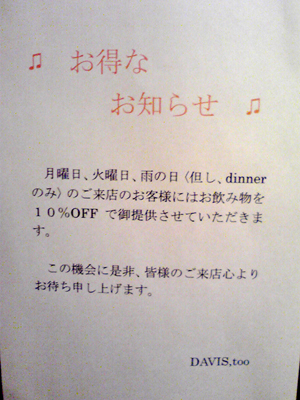 ♫ お得な
お知らせ ♫
月曜日、火曜日、雨の日〈但し、dinner
のみ〉のご来店のお客様にはお飲み物を
１０％OFF で御提供させていただきま
す。
この機会に是非、皆様のご来店心より
お待ち申し上げます。
DAVIS,too